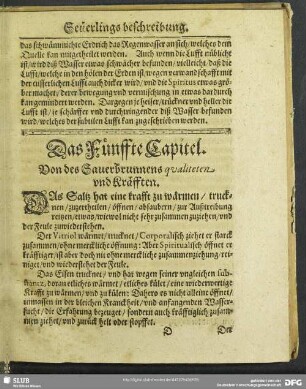 Seüerlings beschreibung.
das schwämmichte Erdrich das Regenwasser an sich / welches dem
Quelle kan mitgetheilet werden. Auch wenn die Lufft nüblicht
ist / wird diß Wasser etwas schwächer befunden / vielleicht / daß die
Lufft / welche in den hölen der Erden ist / wegen verwandschafft mit
der eusserlichen Lufft auch dicker wird / und die Spiritus etwas grö-
ber machet / derer bewegung und vermischung in etwas dardurch
kan gemindert werden. Dargegen je heiser / trückner und heller die
Lufft ist / je schärffer und durchtringender diß Wasser befunden
wird / welches der subtilen Lufft kan zugeschrieben werden.
Das Fünffte Capitel.
Von des Sauerbrunnens qualiteten
und Kräfften.
DAs Saltz hat eine krafft zu wärmen / truck-
nen / zuzertheilen / öffnen / absäubern / zur Außtreibung
reitzen / etwas / wiewol nicht sehr zusammen zuziehen / und
der Feule zuwiederstehen.
Der Vitriol wärmet / trucknet / Corporalisch ziehet er starck
zusammen / ohne mercklich öffnung: Aber Spiritualisch öffnet er
kräfftiger / ist aber doch nicht ohne merckliche zusammenziehung / rei-
niget und wiederstehet der Feule.
Das Eisen trucknet / und hat wegen seiner ungleichen Sub-
stantz, daran etliches wärmet / etliches kület / eine wiederwertige
Krafft zu wärmen / und zu külen: Dahero es nicht alleine öffnet /
inmassen in der bleichen Kranckheit / und anfangenden Wasser-
sucht / die Erfahrung bezeuget / sondern auch kräfftiglich zusam-
men ziehet / und zurück helt oder stopffet.
D
Der
SLUB